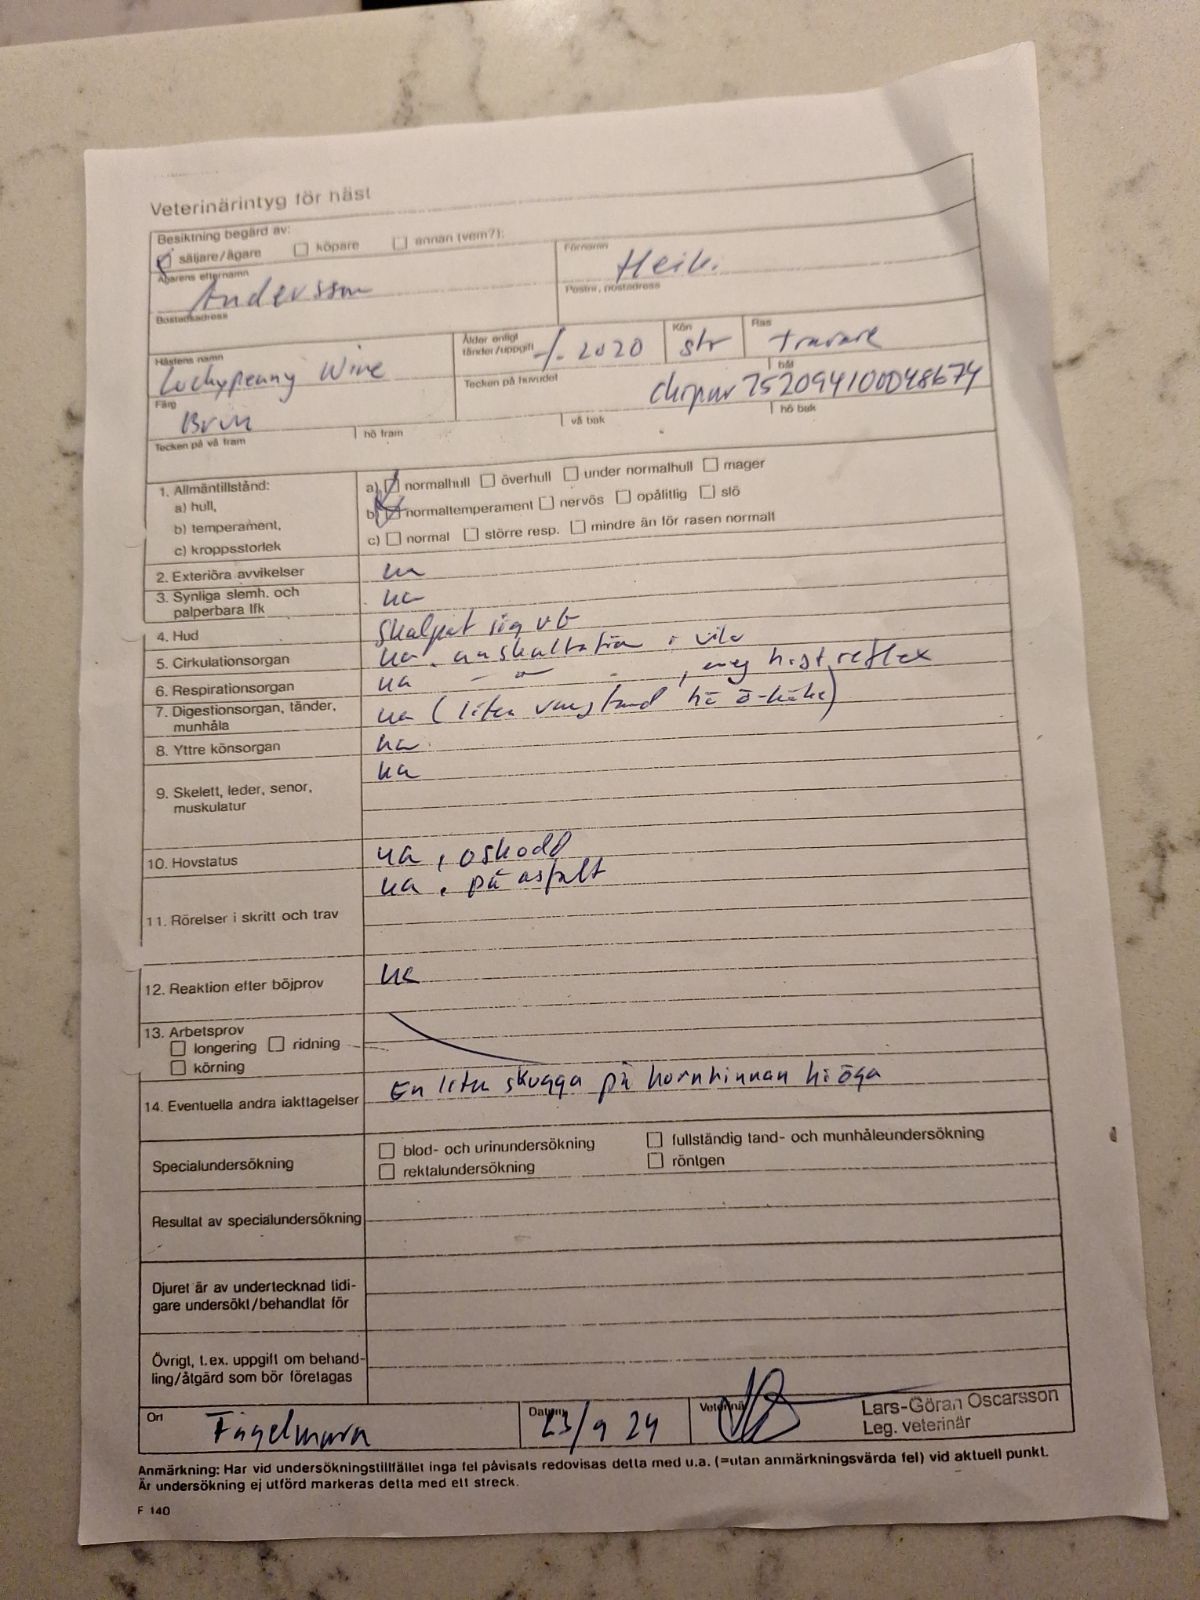 Veterinärintyg för häst
Besiktning begärd av:
säljare/ägare köpare annan (vem?):
Ägarens efternamn Förnamn
Andersson Heiki
Bostadsadress Postnr, postadress
Hästens namn Ålder enligt tänder/uppgift Kön Ras
Luckypenny Wine -/- 2020 str travare
Färg Tecken på huvudet bål
Brun chipnr 752094100048674
Tecken på vä fram hö fram vä bak hö bak
1. Allmäntillstånd:
a) hull, a) normalhull överhull under normalhull mager
b) temperament, b) normaltemperament nervös opålitlig slö
c) kroppsstorlek c) normal större resp. mindre än för rasen normalt
2. Exteriöra avvikelser ua
3. Synliga slemh. och
palperbara lfk ua
4. Hud Skalpat sig vb
5. Cirkulationsorgan ua, auskultation i vila
6. Respirationsorgan ua - " - , host reflex
7. Digestionsorgan, tänder,
munhåla ua (liten hö ö-käke)
8. Yttre könsorgan ua
9. Skelett, leder, senor,
muskulatur ua
10. Hovstatus ua, oskodd
11. Rörelser i skritt och trav ua, på asfalt
12. Reaktion efter böjprov ua
13. Arbetsprov
longering ridning
körning
14. Eventuella andra iakttagelser En liten skugga på hornhinnan hö öga
Specialundersökning blod- och urinundersökning fullständig tand- och munhåleundersökning
rektalundersökning röntgen
Resultat av specialundersökning
Djuret är av undertecknad tidi-
gare undersökt/behandlat för
Övrigt, t.ex. uppgift om behand-
ling/åtgärd som bör företagas
Ort Datum Veterinär
Fågelmara 23/9 24 Lars-Göran Oscarsson
Leg. veterinär
Anmärkning: Har vid undersökningstillfället inga fel påvisats redovisas detta med u.a. (=utan anmärkningsvärda fel) vid aktuell punkt.
Är undersökning ej utförd markeras detta med ett streck.
F 140